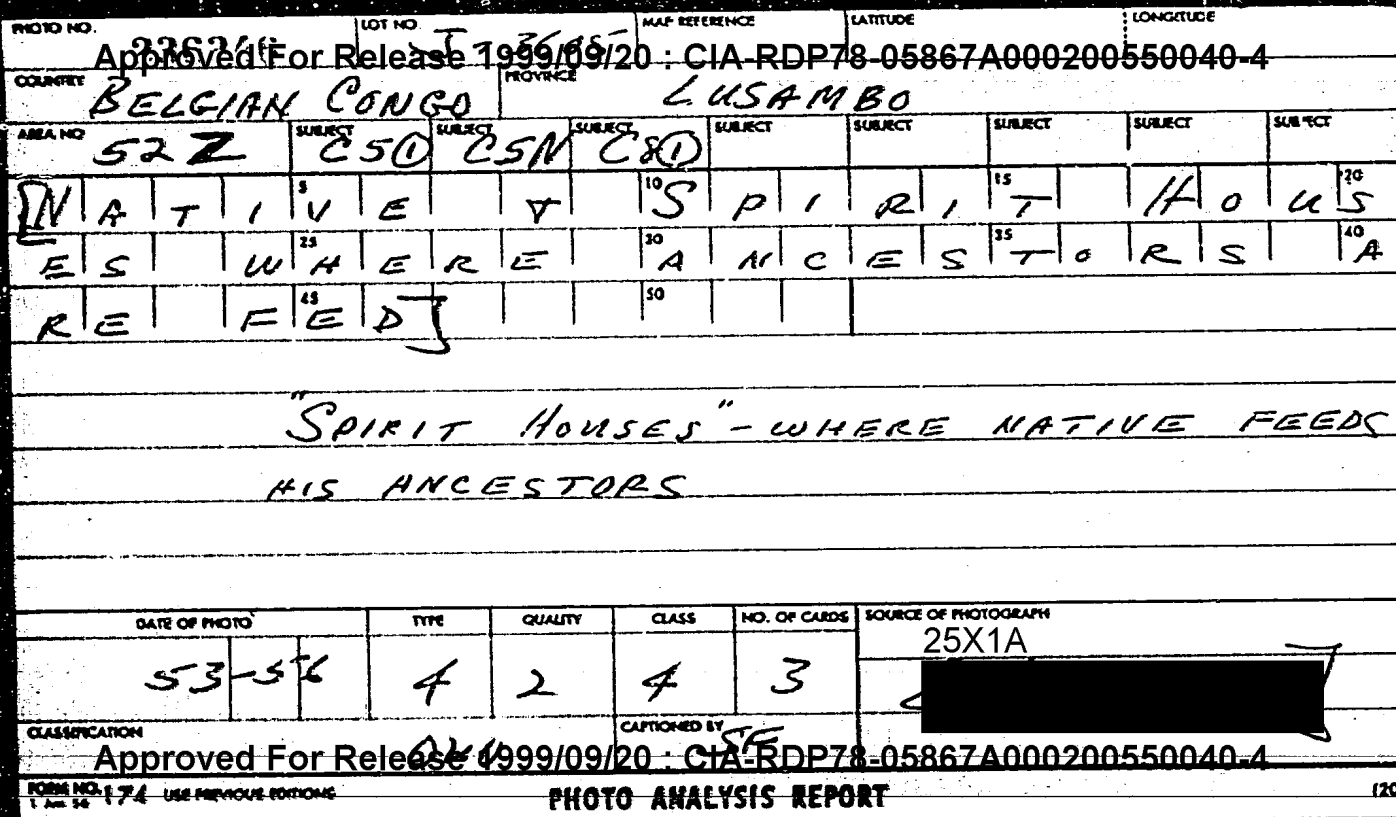 PHOTO NO. LOT NO. MAP REFERENCE LATITUDE LONGITUDE
Approved For Release 1999/09/20 : CIA-RDP78-05867A000200550040-4
COUNTRY BELGIAN CONGO PROVINCE LUSAMBO
AREA NO 52Z SUBJECT C5① SUBJECT C5N SUBJECT C8① SUBJECT SUBJECT SUBJECT SUBJECT SUBJECT
[NATIVE ∀ SPIRIT HOUS
5 10 15 20
ES WHERE ANCESTORS A
25 30 35 40
RE FED]
45 50
"SPIRIT HOUSES" - WHERE NATIVE FEEDS
HIS ANCESTORS
DATE OF PHOTO TYPE QUALITY CLASS NO. OF CARDS SOURCE OF PHOTOGRAPH
25X1A
53-56 4 2 4 3
CLASSIFICATION CAPTIONED BY
Approved For Release 1999/09/20 : CIA-RDP78-05867A000200550040-4
FORM NO. 174 USE PREVIOUS EDITIONS PHOTO ANALYSIS REPORT (20